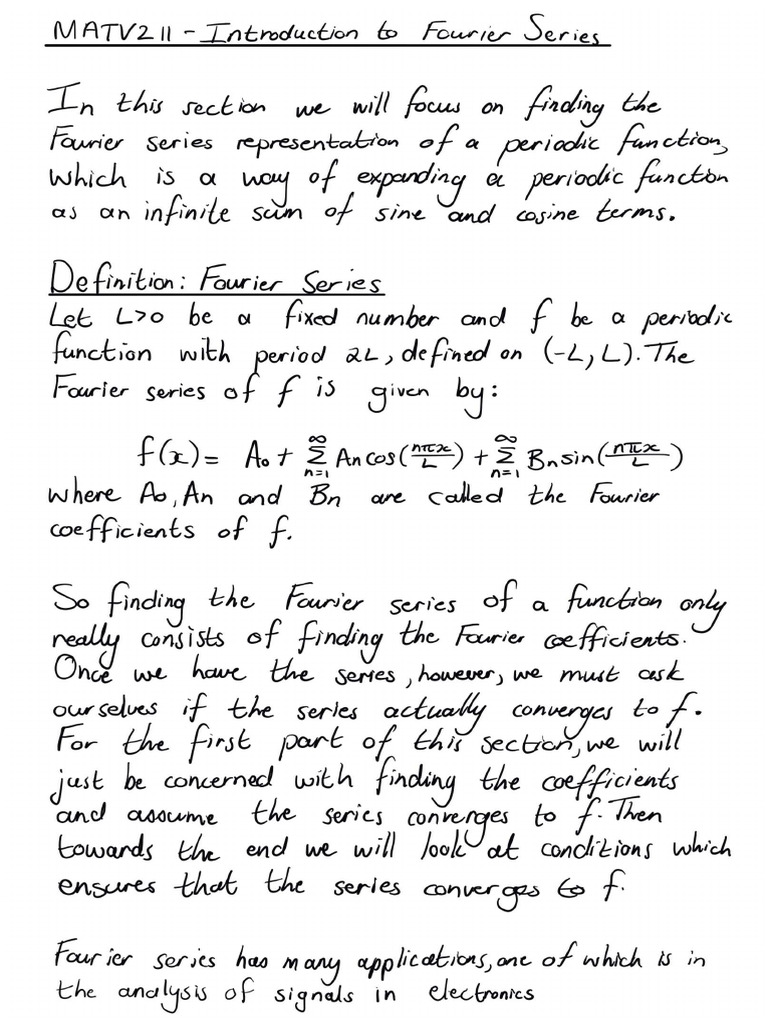 MATV211 - Introduction to Fourier Series
In this section we will focus on finding the
Fourier series representation of a periodic function,
which is a way of expanding a periodic function
as an infinite sum of sine and cosine terms.
Definition: Fourier Series
Let L>0 be a fixed number and f be a periodic
function with period 2L, defined on (-L, L). The
Fourier series of f is given by:
f(x) = A₀ + ∞∑n=1 An cos(nπx/L) + ∞∑n=1 Bn sin(nπx/L)
where A₀, An and Bn are called the Fourier
coefficients of f.
So finding the Fourier series of a function only
really consists of finding the Fourier coefficients.
Once we have the series, however, we must ask
ourselves if the series actually converges to f.
For the first part of this section, we will
just be concerned with finding the coefficients
and assume the series converges to f. Then
towards the end we will look at conditions which
ensures that the series converges to f.
Fourier series has many applications, one of which is in
the analysis of signals in electronics